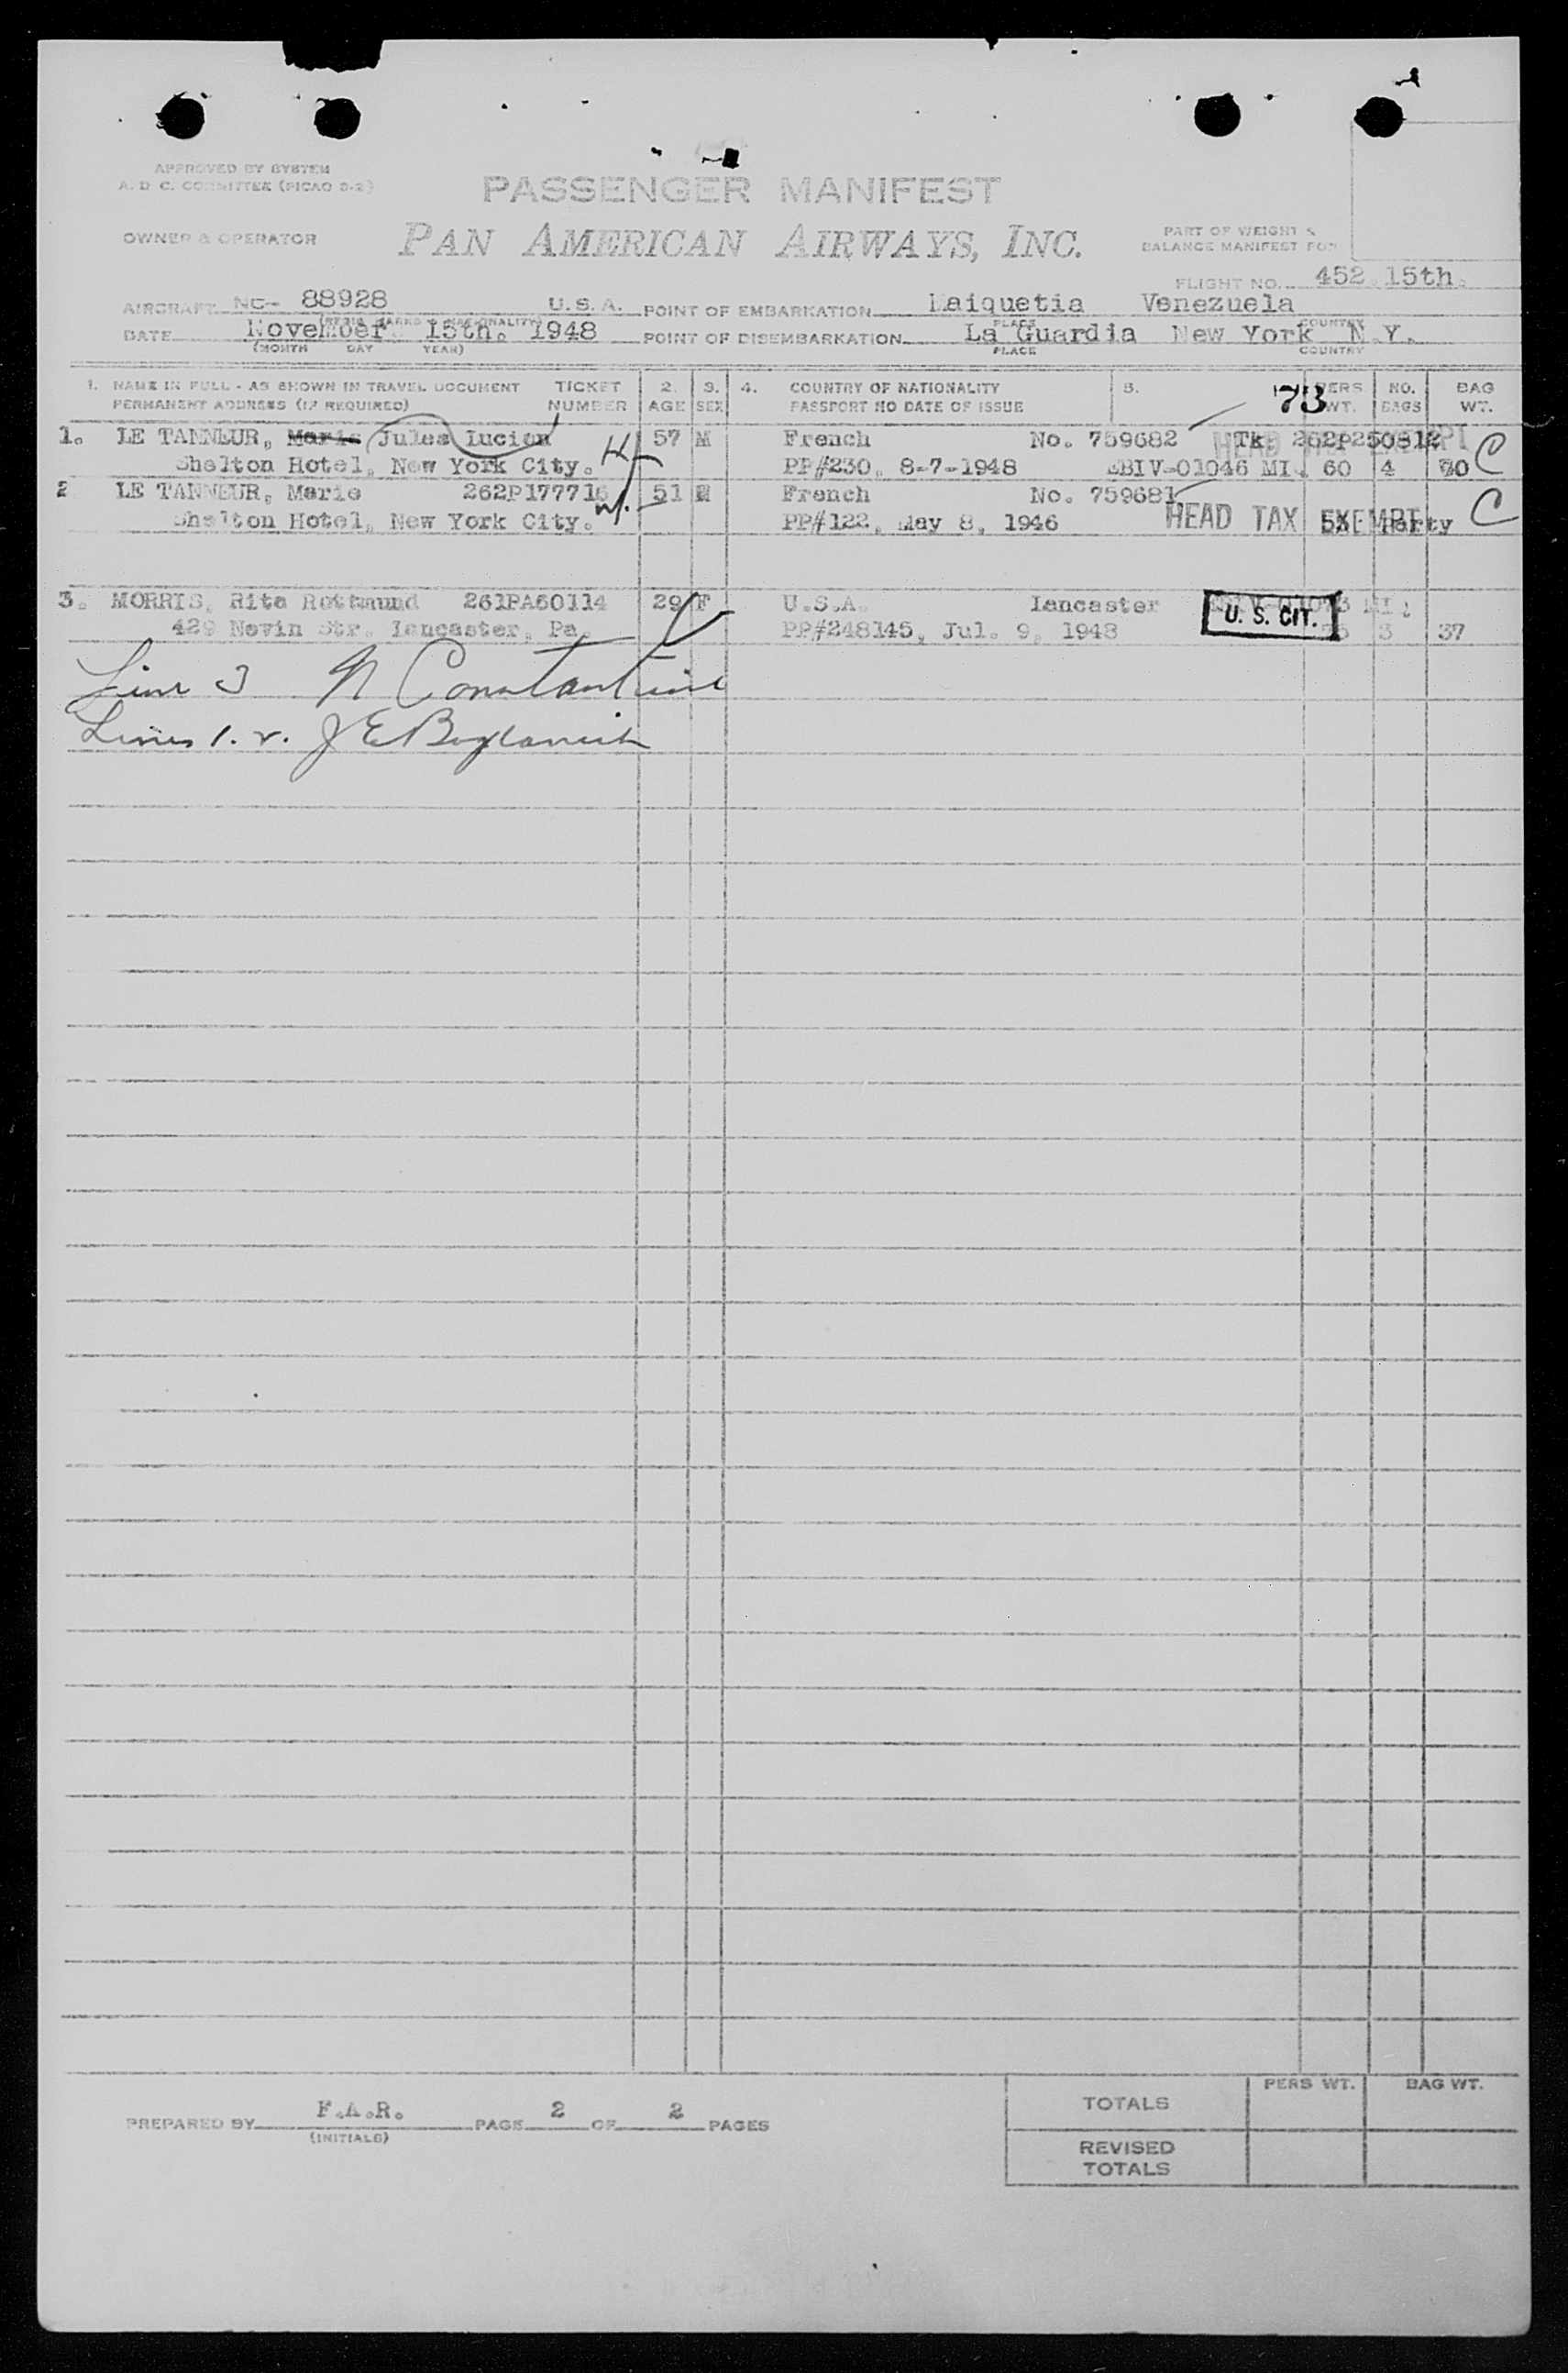 APPROVED BY SYSTEM
A. D. C. COMMITTEE (PICAO D-2)
PASSENGER MANIFEST
OWNER & OPERATOR
PAN AMERICAN AIRWAYS, INC.
PART OF WEIGHT &
BALANCE MANIFEST FOR
FLIGHT NO. 452 15th.
AIRCRAFT NC- 88928 U.S.A. POINT OF EMBARKATION Maiquetia Venezuela
(REGIS. MARKS & NATIONALITY) PLACE COUNTRY
DATE November 15th. 1948 POINT OF DISEMBARKATION La Guardia New York N.Y.
(MONTH DAY YEAR) PLACE COUNTRY
1. NAME IN FULL - AS SHOWN IN TRAVEL DOCUMENT TICKET 2. 3. 4. COUNTRY OF NATIONALITY 5. 73 PERS NO. BAG
PERMANENT ADDRESS (IF REQUIRED) NUMBER AGE SEX PASSPORT NO DATE OF ISSUE WT. BAGS WT.
1. LE TANNEUR, Marie Jules Lucien 57 M French No. 759682 Tk 262P250812 HEAD TAX EXEMPT C
Shelton Hotel, New York City. PP#230, 8-7-1948 EBIV-01046 MI. 60 4 70
2 LE TANNEUR, Marie 262P177716 51 French No. 759681
Shelton Hotel, New York City. PP#122, May 8, 1946 HEAD TAX EXEMPT Party C
3. MORRIS, Rita Rottmund 261PA60114 29 F U.S.A. Lancaster
429 Nevin Str. Lancaster, Pa. PP#248145, Jul. 9, 1948 U. S. CIT. 3 37
Line 3 N Constantine
Lines 1. 2. J E
PREPARED BY F.A.R. PAGE 2 OF 2 PAGES
(INITIALS)
PERS WT. BAG WT.
TOTALS
REVISED
TOTALS